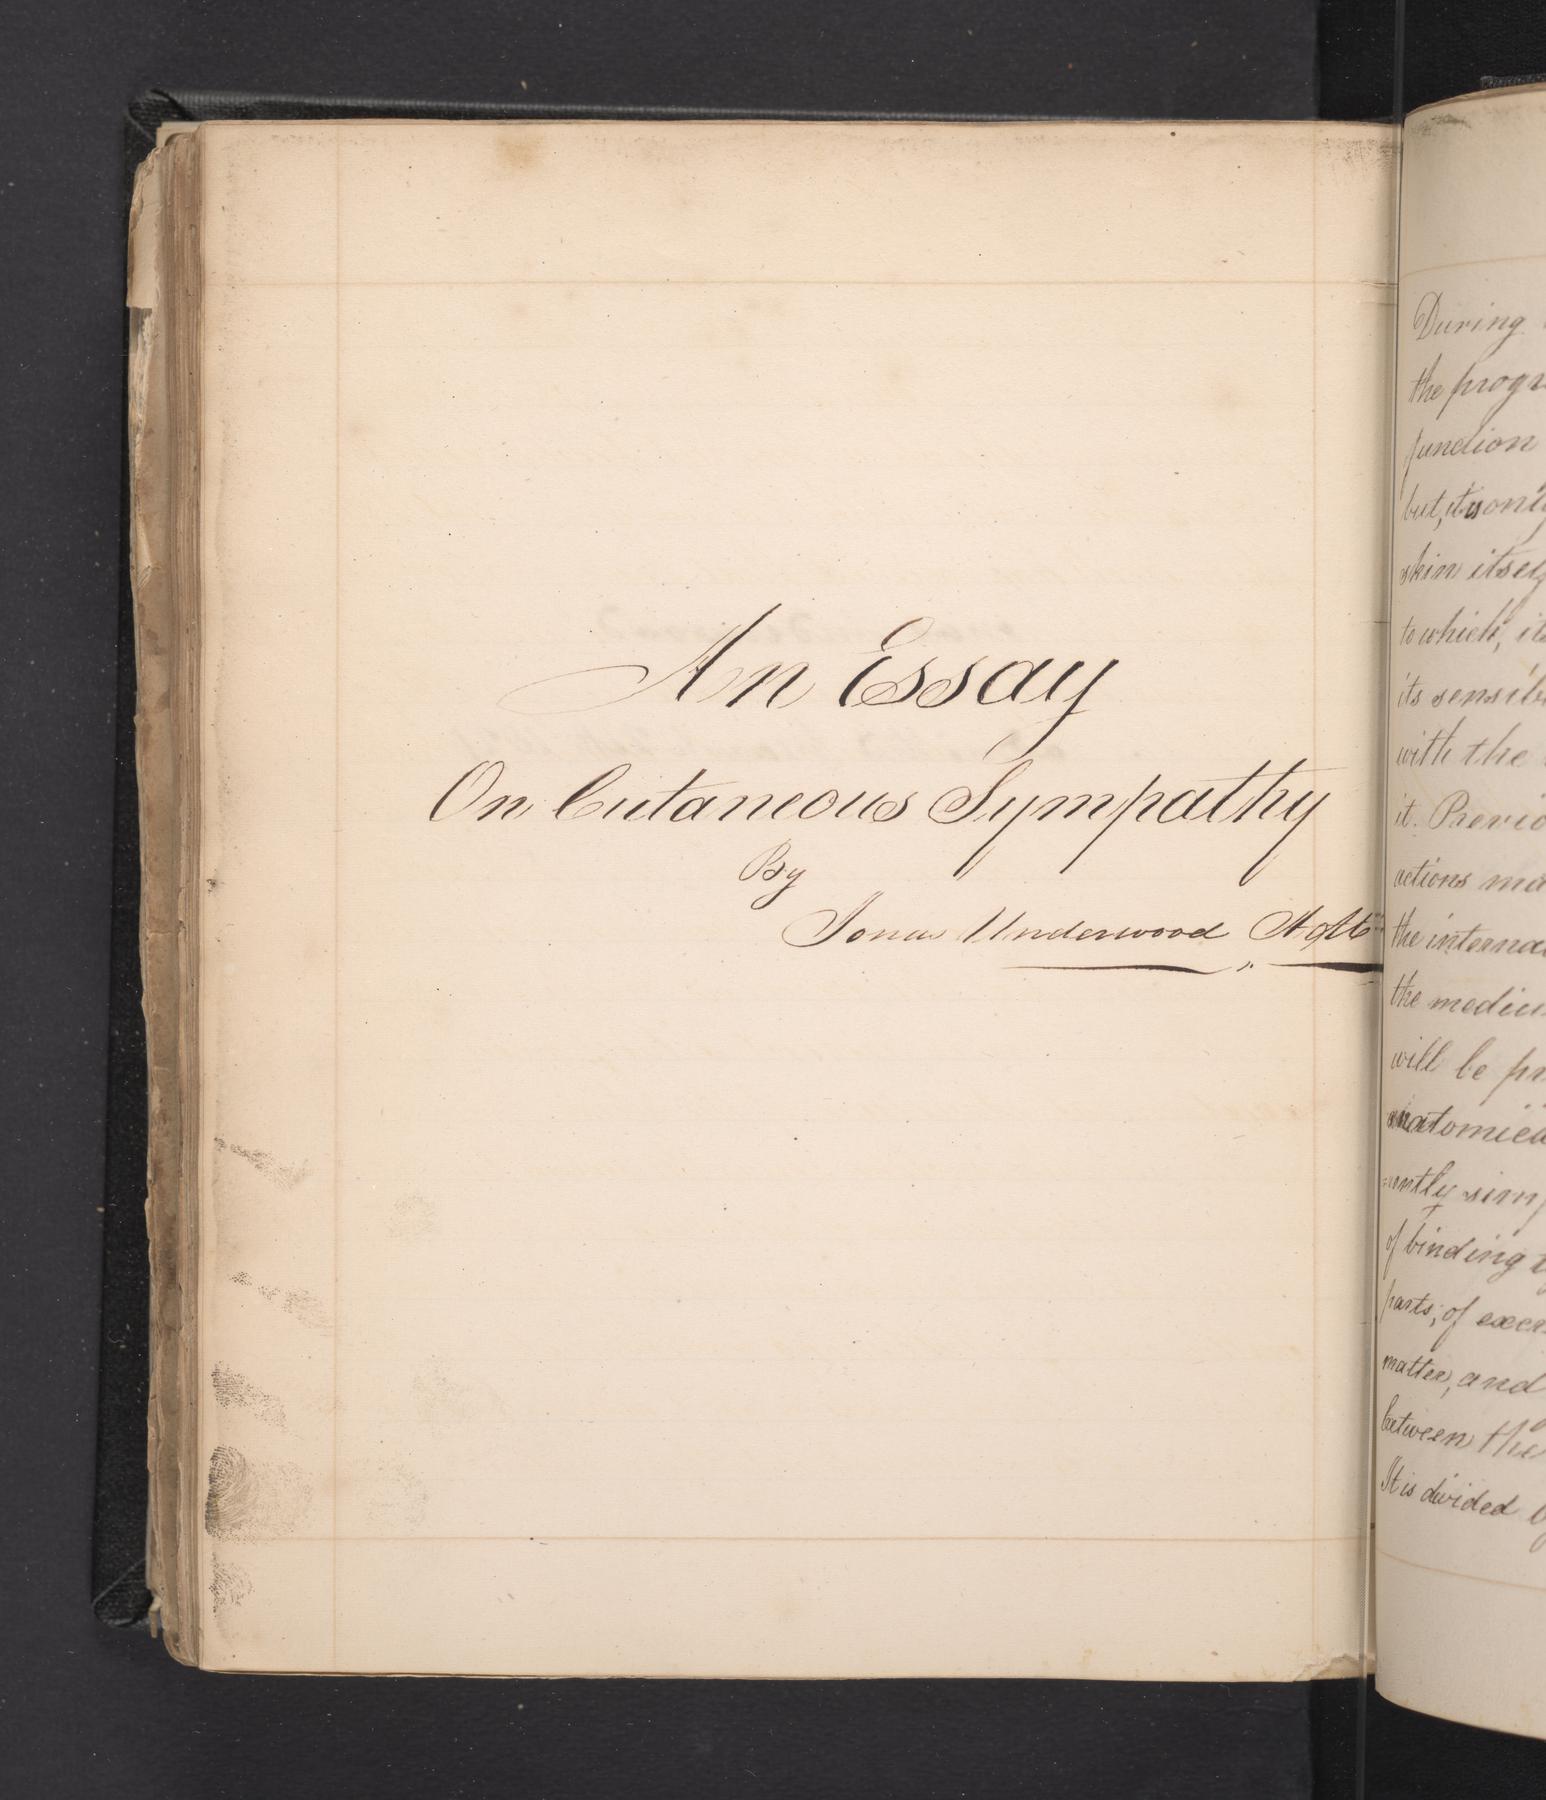 An Essay
On Cutaneous Sympathy
By
Jonas Underwood Holt
During
the progr
function
but, it is only
skin itself
to which, it
its sensib
with the
it. Previo
actions ma
the interna
the mediu
will be pr
anatomica
=ently simp
of binding t
parts, of excr
matter, and
between the
It is divided